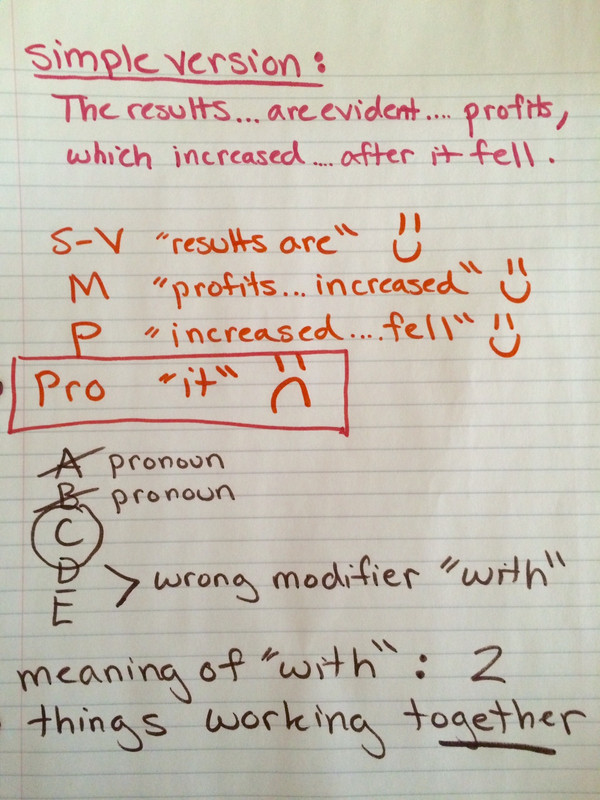 simple version:
The results... are evident.... profits,
which increased.... after it fell.
S-V "results are"
M "profits... increased"
P "increased....fell"
Pro "it"
A pronoun
B pronoun
C
D
E > wrong modifier "with"
meaning of "with": 2
things working together